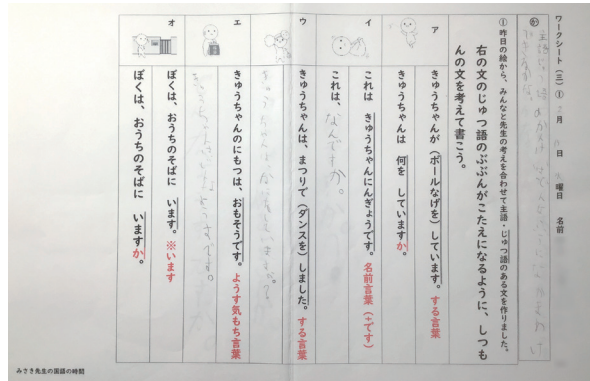 ワークシート（三）① 月 日 曜日 名前
か
①昨日の絵から、みんなと先生の考えを合わせて主語・じゅつ語のある文を作りました。
右の文のじゅつ語のぶぶんがこたえになるように、しつも
んの文を考えて書こう。
ア
きゅうちゃんが（ボールなげを）しています。する言葉
きゅうちゃんは 何を していますか。
イ
これは きゅうちゃんにんぎょうです。名前言葉（＋です）
これは、なんですか。
ウ
きゅうちゃんは、まつりで（ダンスを）しました。する言葉
エ
きゅうちゃんのにもつは、おもそうです。ようす気もち言葉
オ
ぼくは、おうちのそばに います。※います
ぼくは、おうちのそばに いますか。
みさき先生の国語の時間